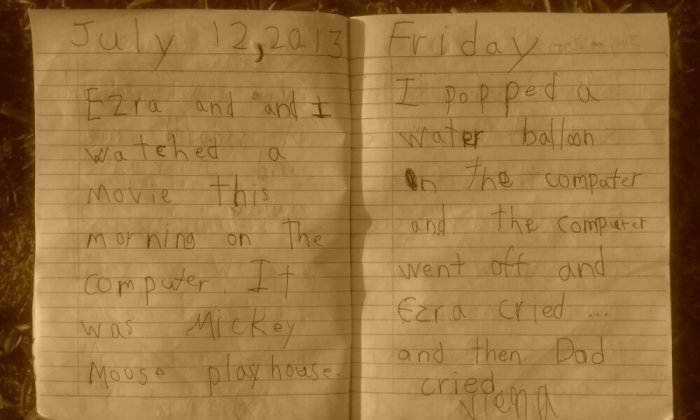 July 12, 2013
Ezra and and I
watched a
movie this
morning on the
computer. It
was Mickey
Mouse playhouse.
Friday
I popped a
water balloon
on the computer
and the computer
went off and
Ezra cried ...
and then Dad
cried
Viena